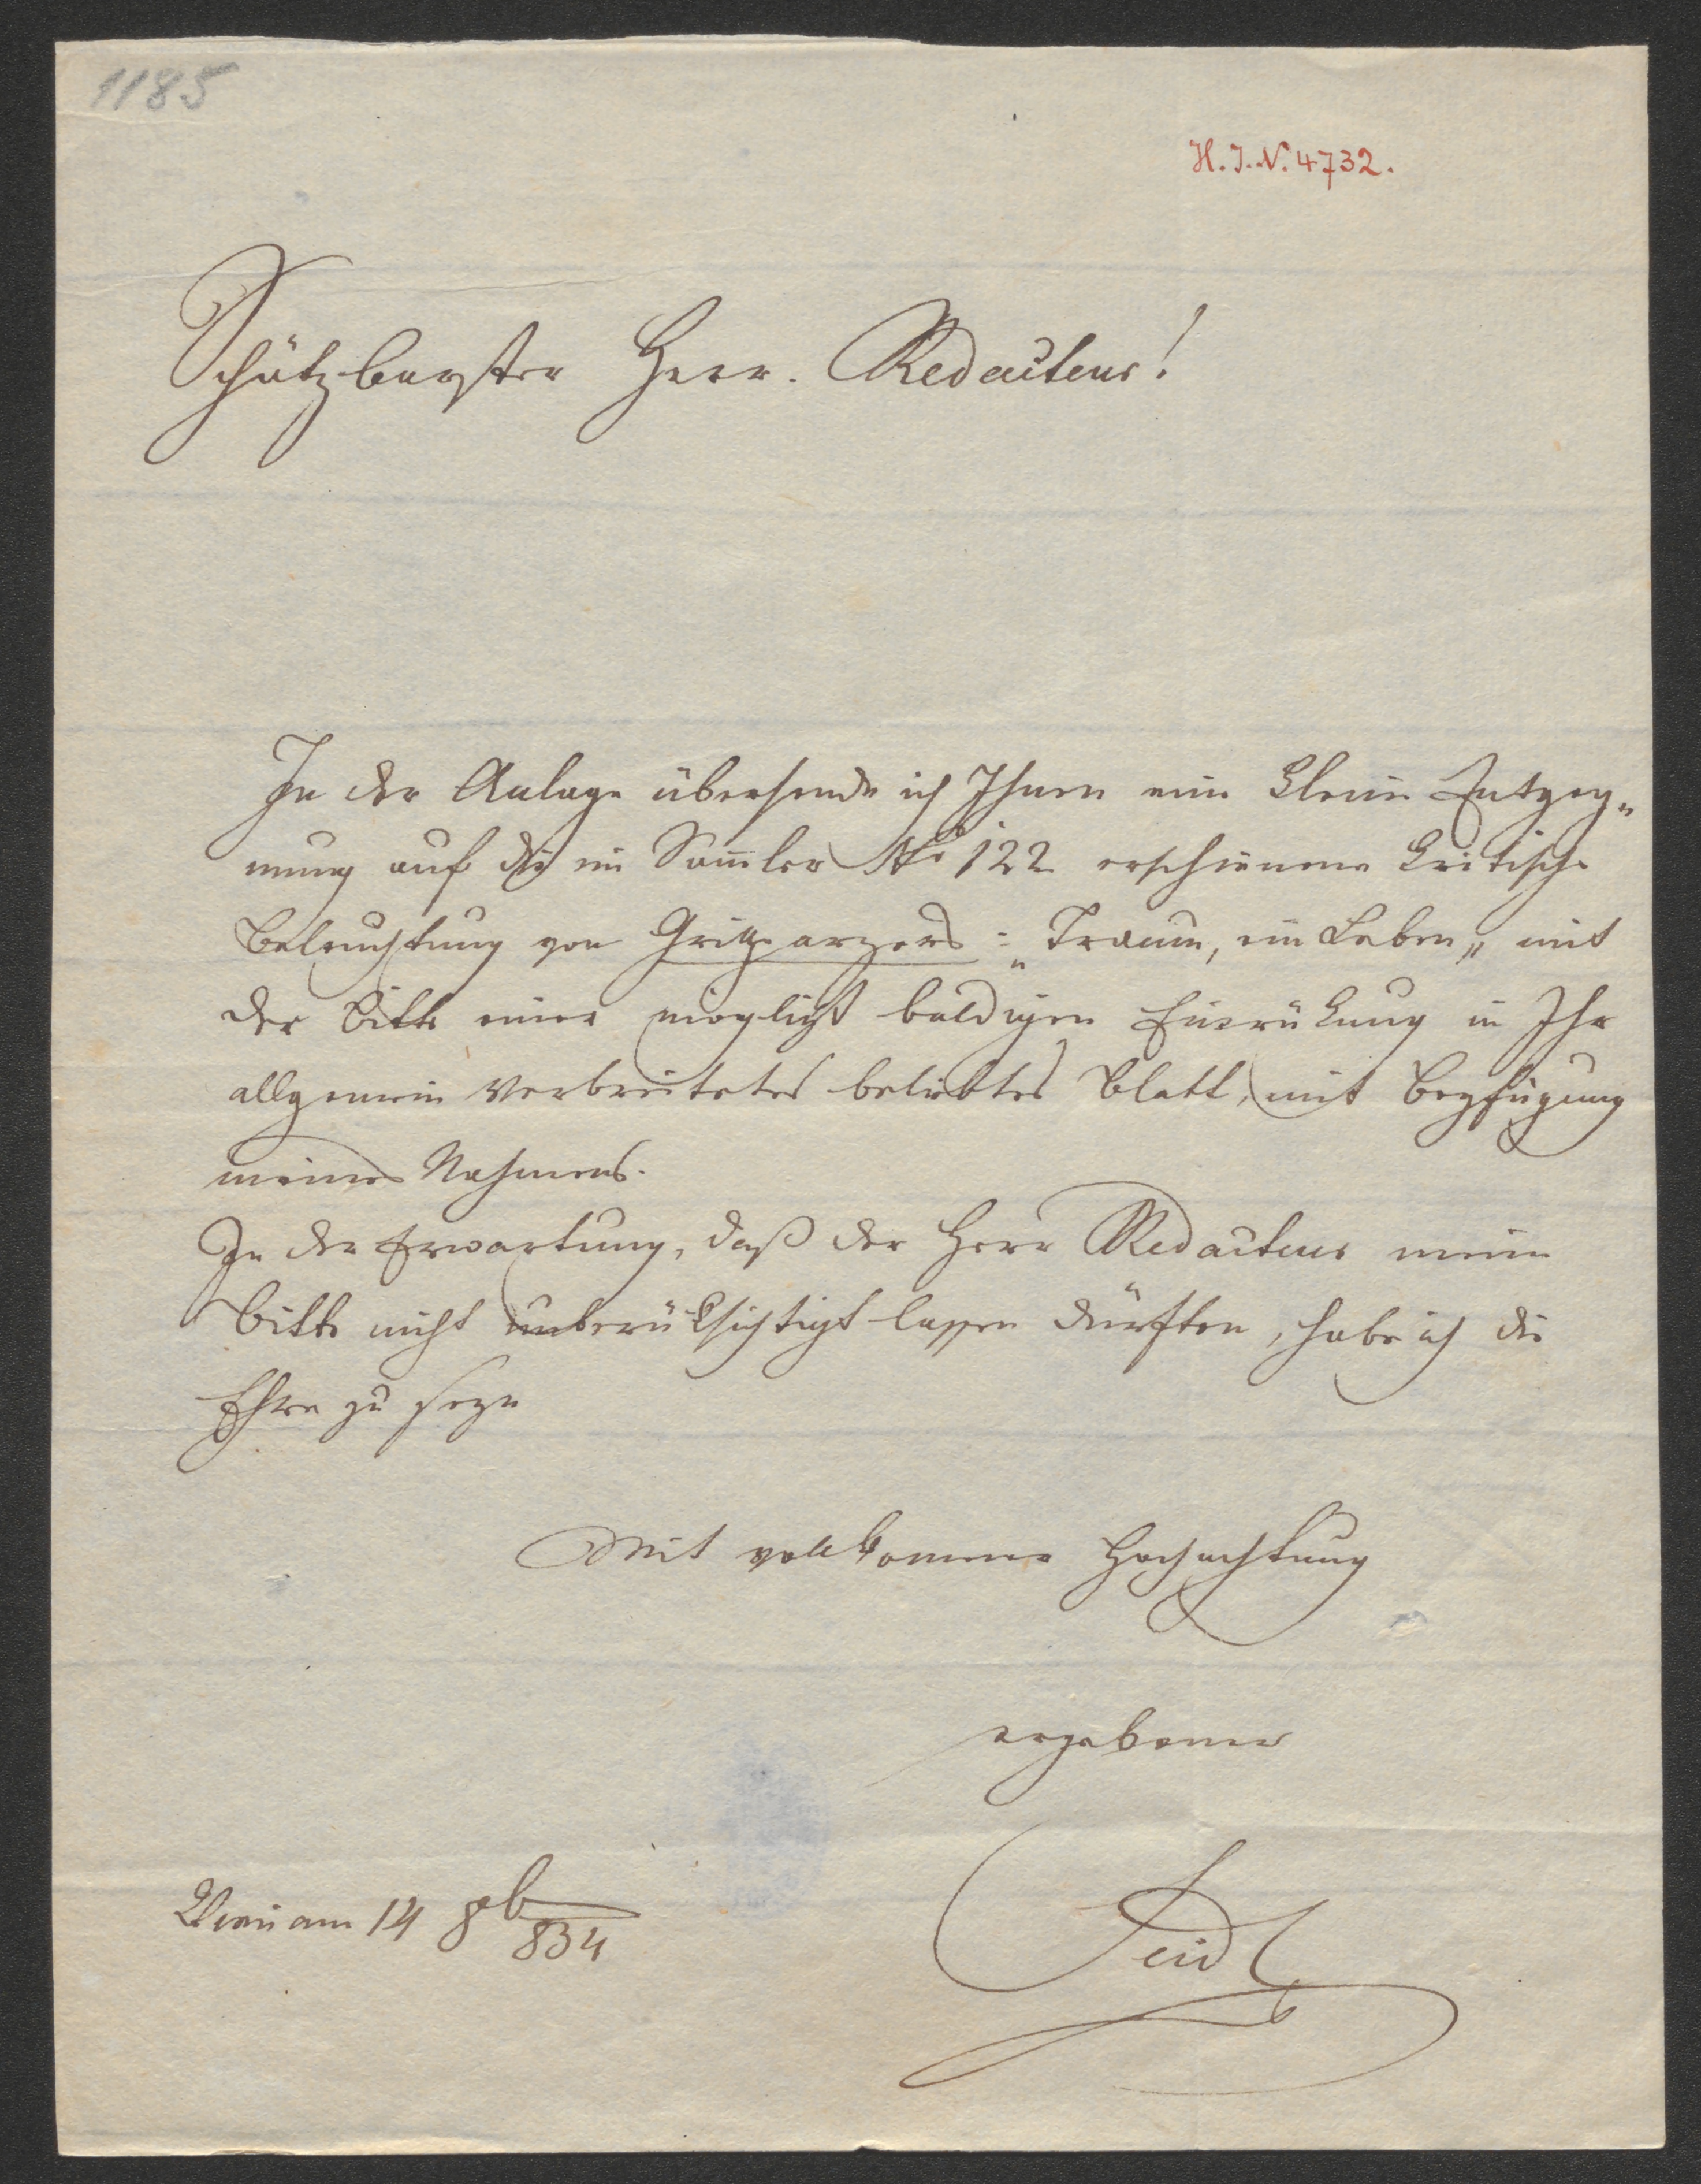 1185
H. I. N. 4732.
Schätzbarster Herr. Redacteur!
In der Anlage übersende ich Ihnen eine kleine Entgeg„
nung auf die im Sam̄ler No 122 erschienene kritische
Beleuchtung von Grillparzers: „Traum, ein Leben„ mit
der Bitte einer möglichst baldigen Einrükung in Ihr
allgemein verbreitetes beliebtes Blatt, mit Beyfügung
meines Nahmens.
In der Erwartung, daß der Herr Redacteur meine
Bitte nicht unberüksichtigt lassen dürften, habe ich die
Ehre zu seyn
Mit vollkommener Hochachtung
ergebener
Wien am 14 8b 834
Seidl